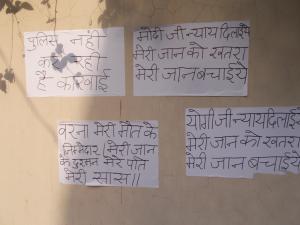 पुलिस नहीं
कर रही
है कार्रवाई
मोदी जी न्याय दिलाईये
मेरी जान को खतरा
मेरी जान बचाईये
वरना मेरी मौत के
जिम्मेदार। मेरी जान
के दुश्मन मेरे पति
मेरी सास।।
योगी जी न्याय दिलाईये
मेरी जान को खतरा
मेरी जान बचाईये